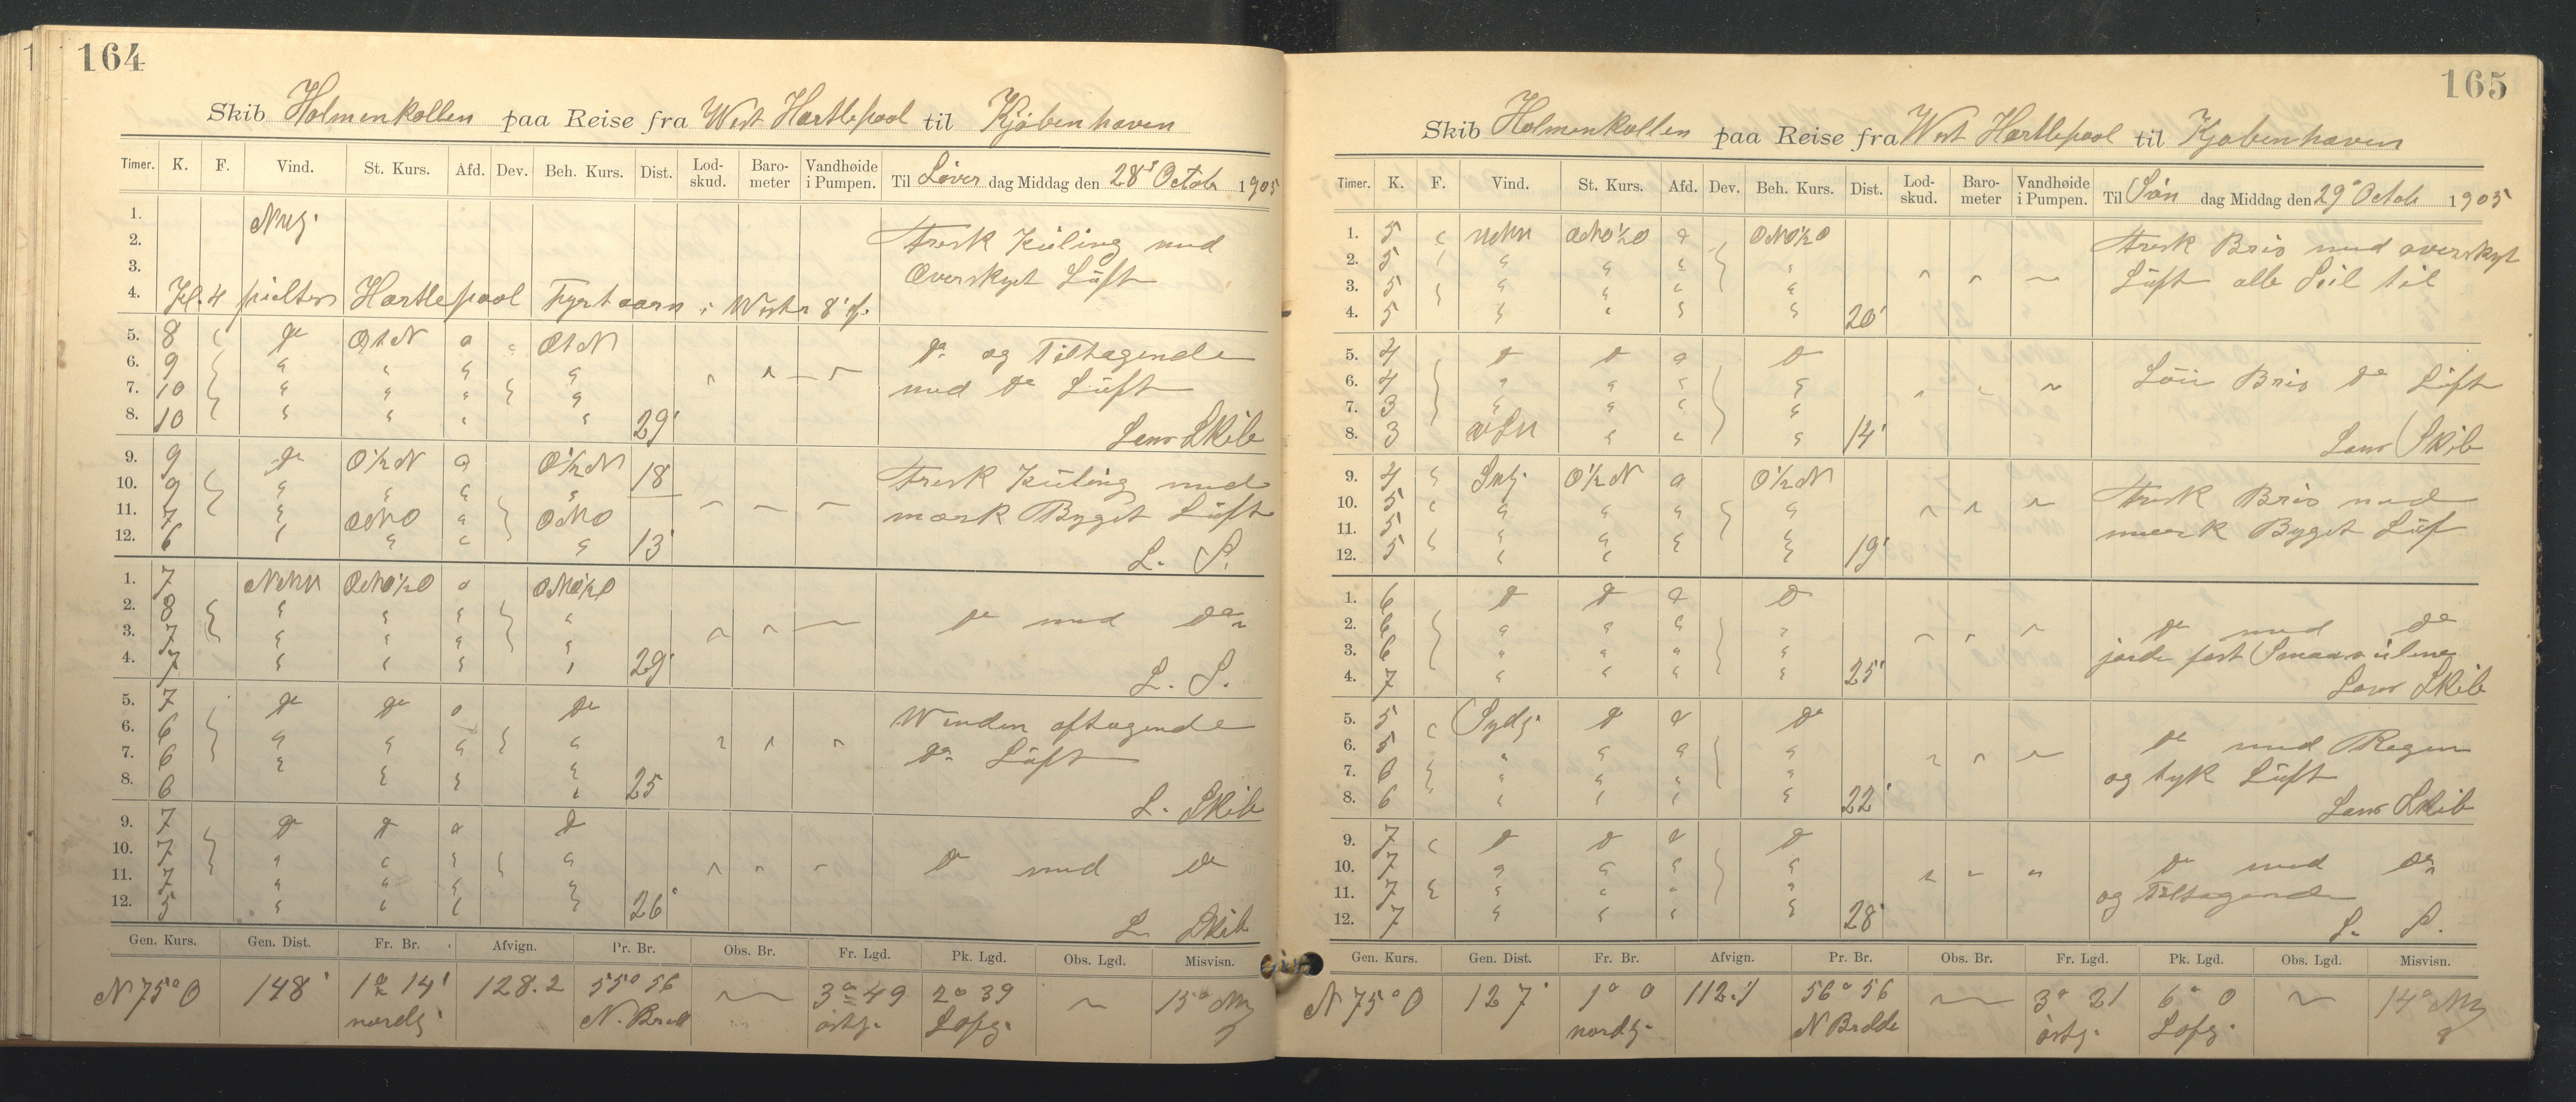 164
Skib Holmenkollen paa Reise fra West Hartlepool til Kjöbenhaven
Timer. K. F. Vind. St. Kurs. Afd. Dev. Beh. Kurs. Dist. Lod-skud. Baro-meter Vandhøide i Pumpen. Til Löver dag Middag den 28 Octob 1905
1. Nvlj.
2. Frisk Kuling med
3. Overskyet Luft
4. Kl. 4 peiltes Hartlepool Fyrtaarn i West 8' af.
5. 8 do OtN o OtN do og Tiltagende
6. 9
7. 10 med do Luft
8. 10 29' Lens Skib
9. 9 do O½N o O½N 18 Frisk Kuling med
10. 9
11. 7 ONO ONO mörk Byget Luft
12. 6 13' L. S.
1. 7 ONO½O o ONO½O
2. 8 do med do
3. 7
4. 7 29' L. S.
5. 7 do do o do Winden aftagende
6. 6 do Luft
7. 6
8. 6 25 L. Skib
9. 7 do do o do
10. 7 do med do
11. 7
12. 5 26' L. Skib
Gen. Kurs. Gen. Dist. Fr. Br. Afvign. Pr. Br. Obs. Br. Fr. Lgd. Pk. Lgd. Obs. Lgd. Misvisn.
N 75° O 148' 1° 14' 128.2 55° 56 3° 49 2° 39 15°
nordlj. N. Bredd östlj. Löpg.
165
Skib Holmenkollen paa Reise fra West Hartlepool til Kjöbenhaven
Timer. K. F. Vind. St. Kurs. Afd. Dev. Beh. Kurs. Dist. Lod-skud. Baro-meter Vandhøide i Pumpen. Til Sön dag Middag den 29 Octob 1905
1. 5 ONO½O o ONO½O Frisk Bris med overskyet
2. 5
3. 5 Luft alle Seil til
4. 5 20'
5. 4 do do o do
6. 4 Löi Bris do Luft
7. 3
8. 3 14' Lens Skib
9. 4 O½N o O½N Frisk Bris med
10. 5
11. 5 mörk Byget Luf
12. 5 19'
1. 6 do do o do
2. 6 do med do
3. 6 fast
4. 7 25' Lens Skib
5. 5 Sydlj. do o do
6. 5 do med Regen
7. 6 og tyk Luft
8. 6 22' Lens Skib
9. 7 do do o do
10. 7 do med do
11. 7 og Tiltagende
12. 7 28' L. S.
Gen. Kurs. Gen. Dist. Fr. Br. Afvign. Pr. Br. Obs. Br. Fr. Lgd. Pk. Lgd. Obs. Lgd. Misvisn.
N 75° O 127' 1° 0 112.1 56° 56 3° 21 6° 0 14°
nordlj. N Bredde östlj. Löpg.